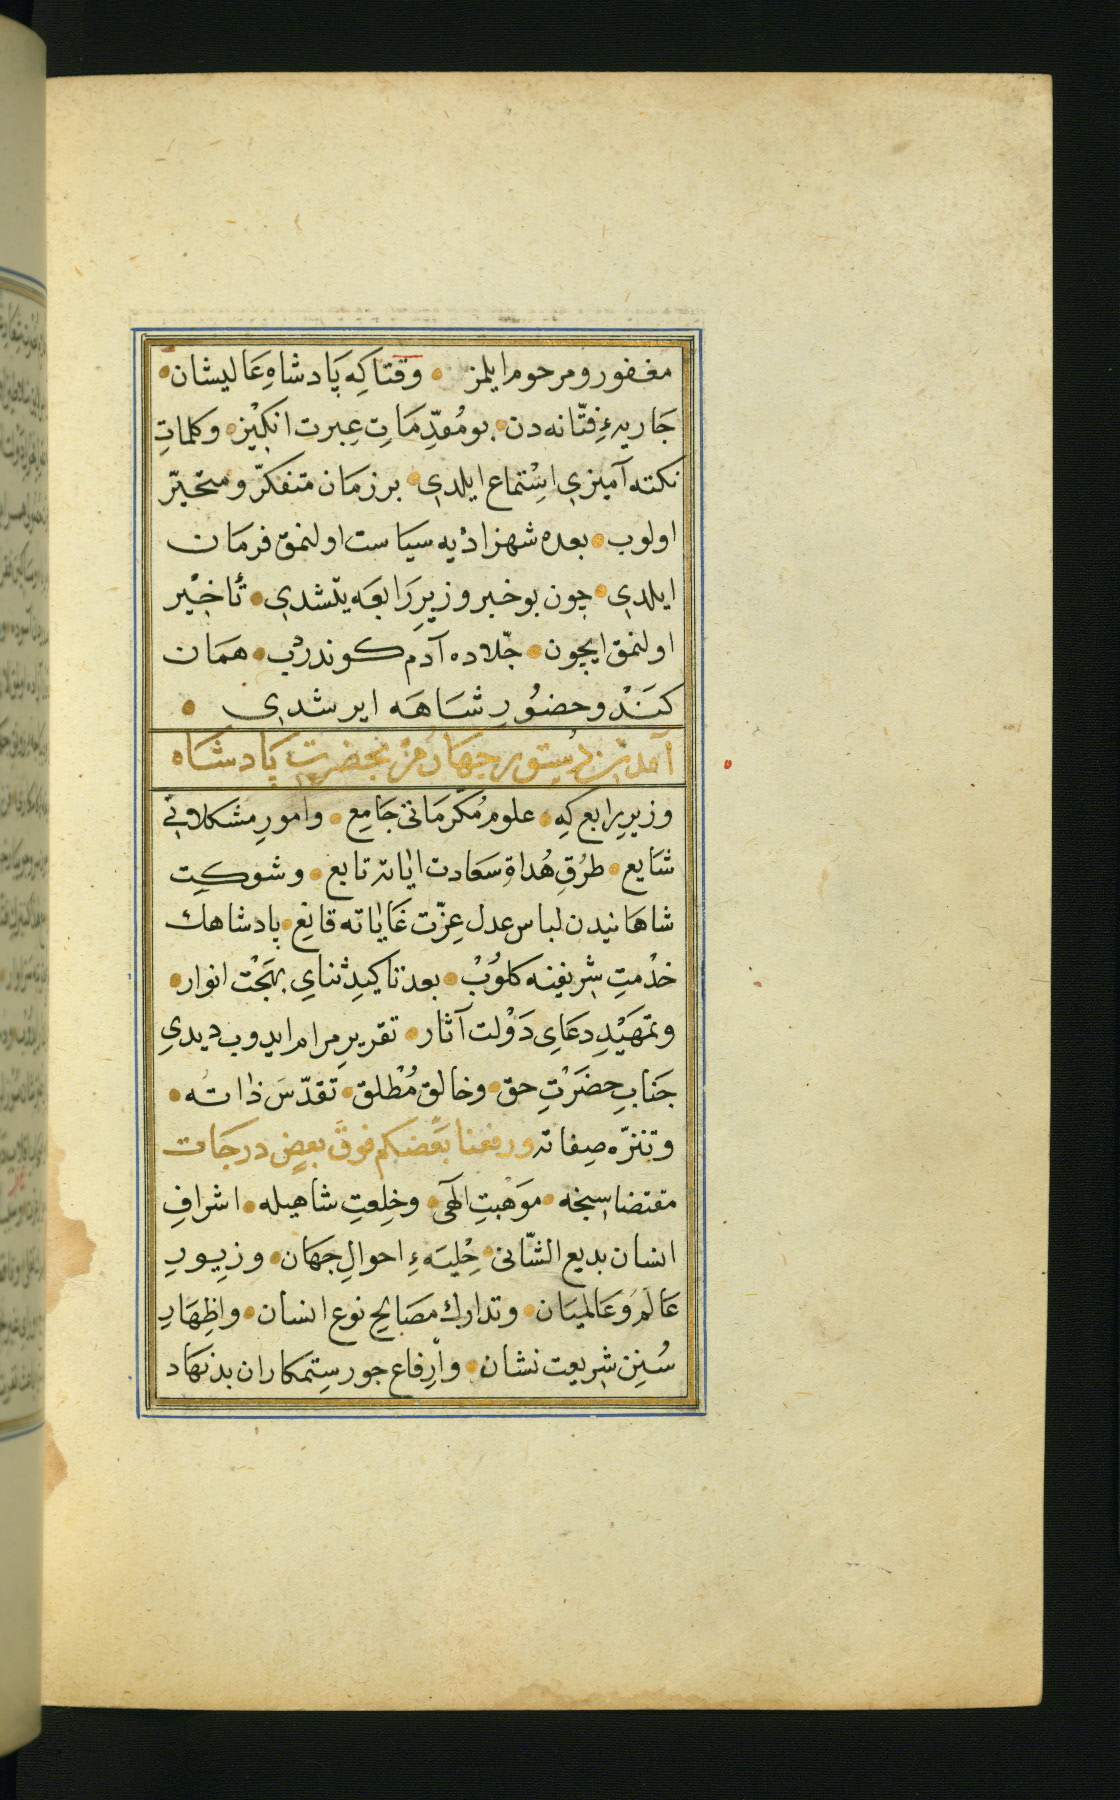 مغفور و مرحوم ایلمز وقتاکه پادشاهِ عالیشان
جاریهٔ فتّانه دن بو مُقدِّمَاتِ عِبرت انکیز وکلماتِ
نکته آمیزی اِسْتماع ایلدی بر زمان متفکّر و متحیّر
اولوب بعده شهزادیه سیاست اولنمق فرمان
ایلدی چون بو خبر وزیرِ رابعه یتشدی تأخیر
اولنمق ایچون جلّاده آدم کوندردب همان
کَنْدو حضورِ شاهَه ایرشدی
آمدن دستور جهارمین بحضرت پادشاه
وزیرِ رابع که علوم مُکرّماتی جامع وامورِ مشکلاتی
شایع طرُقِ هُداةِ سَعادت ایاته تابع وشوکتِ
شاهانیدن لباس عدل عِزّت غایاته قانع پادشاهك
خدْمتِ شریفنه کلوُبْ بعد تاکیدِ ثنایِ بهجَتْ انوار
وتمهَیْدِ دعَایِ دَوْلت آثار تقریرِ مرام ایدوب دیدی
جنابِ حضَرْتِ حق وخالق مُطْلق تقدّسَ ذاته
وتنزّه صِفاته ورفعنا بعضکم فوقَ بعضٍ درجات
مقتضاسنجه موَهْبتِ الٰهی وخِلعتِ شاهیله اشرافِ
انسان بدیع الشّانی حِلْیَهٔ احوالِ جهان وزیورِ
عالَم وعَالمیَان وتدارك مصَالحِ نوع انسان واِظهَارِ
سُننِ شریعت نشان واِرفاع جور ستمکاران بدنهاد